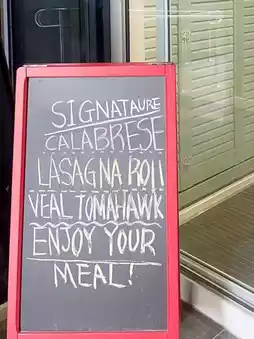 SIGNATAURE
CALABRESE
LASAGNA ROll
VEAL TOMAHAWK
ENJOY YOUR
MEAL!